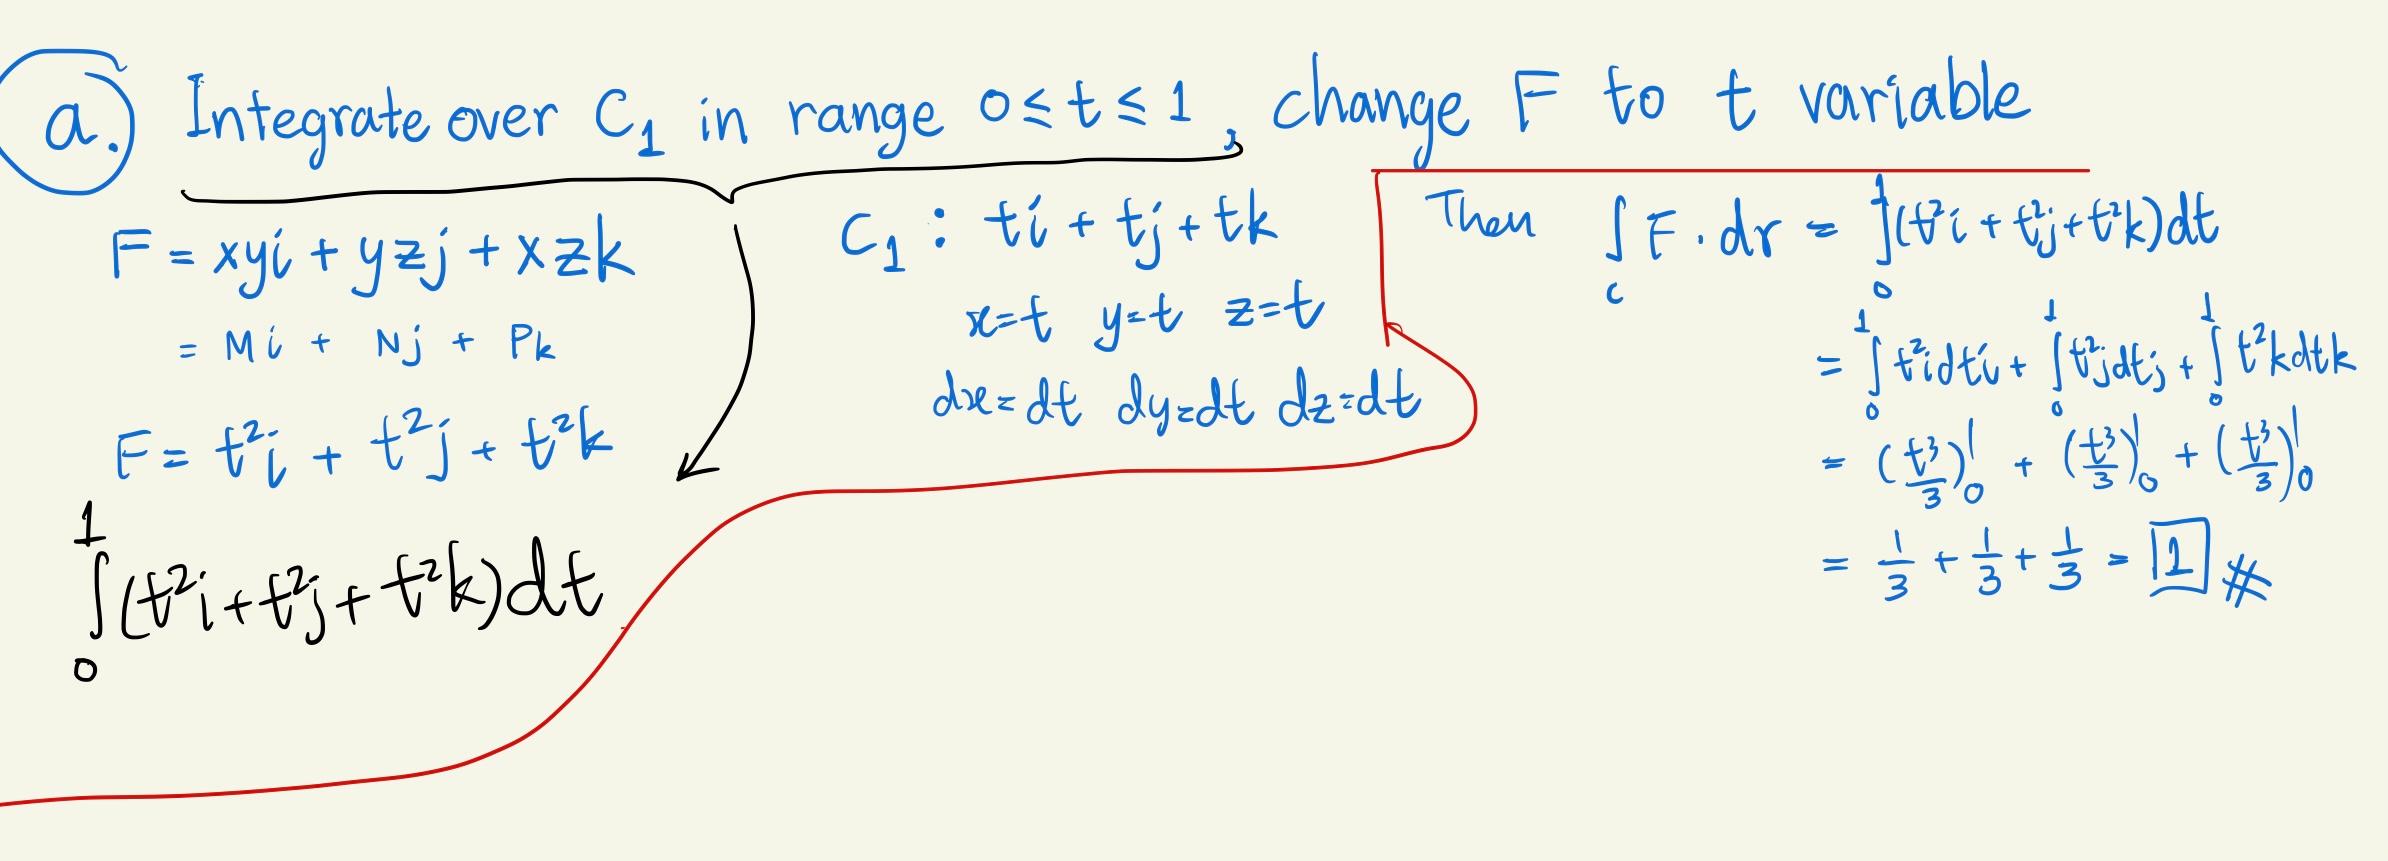 a. Integrate over C₁ in range 0 ≤ t ≤ 1, change F to t variable
F = xyi + yzj + xzk
= Mi + Nj + Pk
F = t²i + t²j + t²k
∫₀¹(t²i + t²j + t²k)dt
C₁ : ti + tj + tk
x=t y=t z=t
dx=dt dy=dt dz=dt
Then ∫c F · dr = ∫₀¹(t²i + t²j + t²k)dt
= ∫₀¹ t²idti + ∫₀¹ t²jdtj + ∫₀¹ t²kdtk
= (t³/3)|₀¹ + (t³/3)|₀¹ + (t³/3)|₀¹
= 1/3 + 1/3 + 1/3 = 1 #